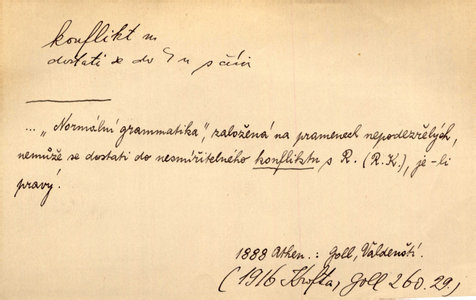 konflikt m
dostati se do ~u s čím
... „Normální grammatika“, založená na pramenech nepodezřelých,
nemůže se dostati do nesmiřitelného konfliktu s R. (R.K.), je-li
pravý.
1888 Athen.: Goll, Valdenští.
(1916 Krofta, Goll 260.29.)